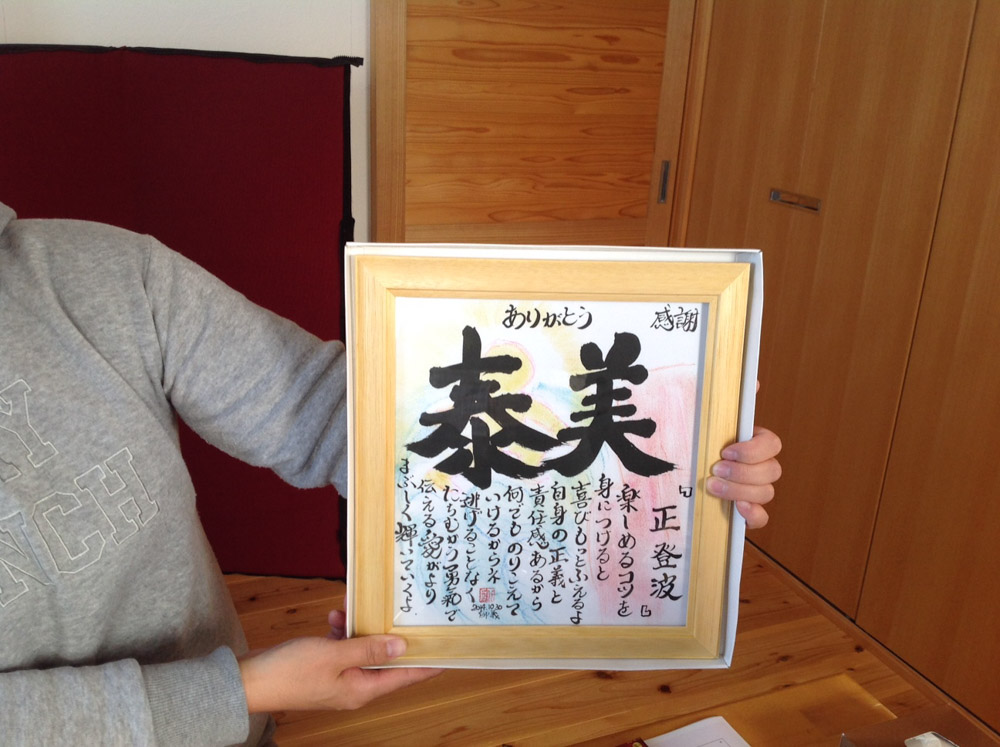 感謝
ありがとう
泰美
『正登波』
楽しめるコツを
身につけると
喜びもっとふえるよ
自身の正義と
責任感あるから
何でものりこえて
いけるからネ
逃げることなく
たちむかう勇氣で
伝える愛がより
まぶしく輝いていくよ
NCH